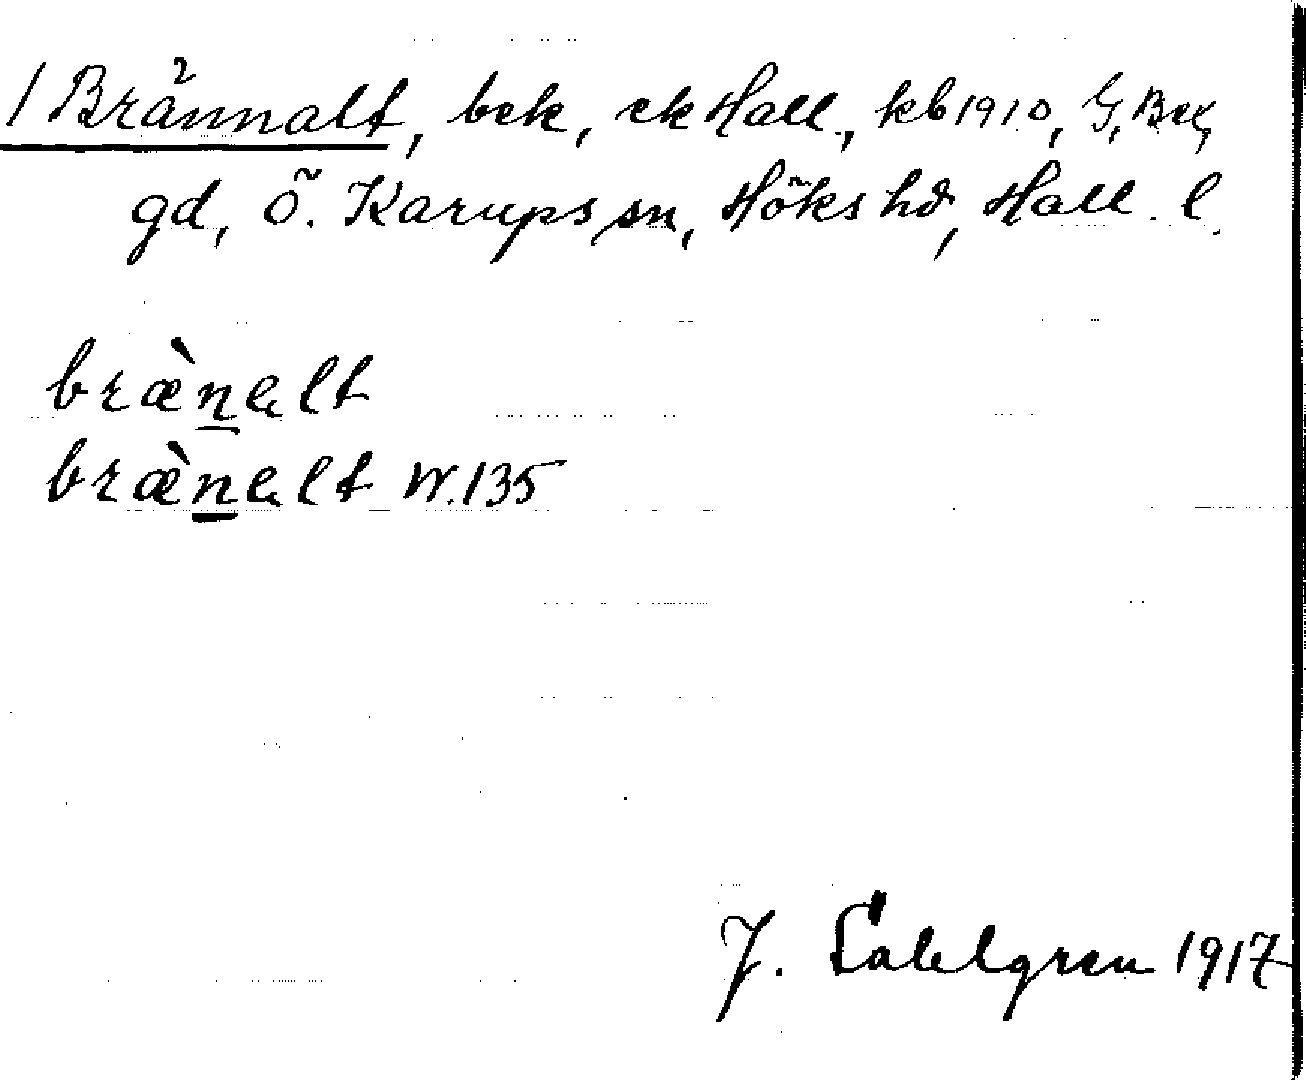 1 Brännalt, bek, ek Hall., kb 1910, G, Bex,
gd, Ö. Karups sn, Höks hd, Hall. l.
brænalt
brænalt W. 135
J. Sahlgren 1917